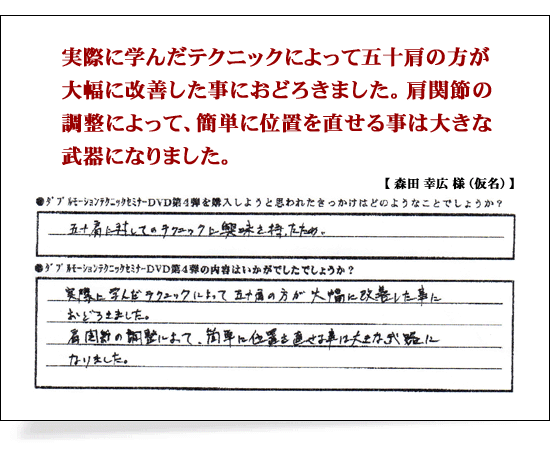 実際に学んだテクニックによって五十肩の方が
大幅に改善した事におどろきました。肩関節の
調整によって、簡単に位置を直せる事は大きな
武器になりました。
【 森田 幸広 様（仮名）】
●ダブルモーションテクニックセミナーDVD第4弾を購入しようと思われたきっかけはどのようなことでしょうか？
五十肩に対してのテクニックに興味を持ったため。
●ダブルモーションテクニックセミナーDVD第4弾の内容はいかがでしたでしょうか？
実際に学んだテクニックによって五十肩の方が大幅に改善した事に
おどろきました。
肩関節の調整によって、簡単に位置を直せる事は大きな武器に
なりました。